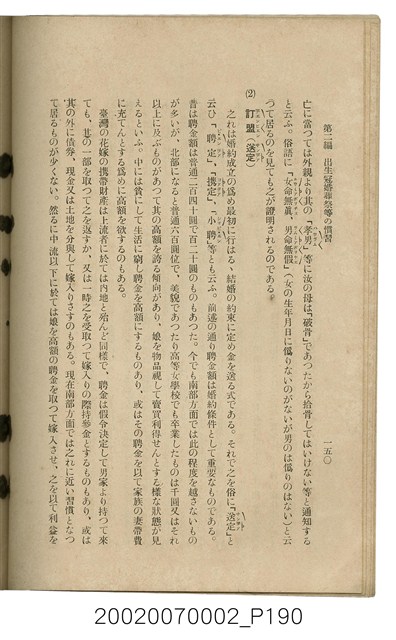 第二編　出生冠婚葬祭等の慣習
一五〇
亡に當つては外親より其の「孝男」等に汝の母は「破骨」であつたから捨骨してはいけない等と通知する
と云ふ。俗諺に「女命無眞、男命無假」（女の生年月日に僞りないのがないが男のは僞りのはない）と云
つて居るのを見ても之が證明されるのである。
(2)　訂盟（送定）
之れは婚約成立の爲め最初に行はるゝ結婚の約束に定め金を送る式である。それで之を俗に「送定」と
云ひ「聘定」、「携定」、「小聘」等とも云ふ。前述の通り聘金額は婚約條件として重要なものである。
昔は聘金額は普通二百四十圓で百二十圓のものもあつた。今でも南部方面では此の程度を越さないもの
が多いが、北部になると普通六百圓位で、美貌であつたり高等女學校でも卒業したものは千圓又はそれ
以上に及ぶものがあつて其の高額を誇る傾向があり、娘を物品視して賣買利得せんとする樣な狀態が見
えるといふ。中には嘗にして生活に窮し聘金を高額にするものあり、或はその聘金を以て家族の妻帶費
に充てんとする爲めに高額を欲するのもある。
臺灣の花嫁の携帶財產は上流者に於ては內地と殆んど同樣で、聘金は假令決定して男家より持つて來
ても、其の一部を取つて之を返すか、又は一時之を受取つて嫁入りの際持參金とするものもあり、或は
其の外に債券、現金又は土地を分與して嫁入りさすのもある。現在南部方面では之れに近い習慣となつ
て居るものが少くない。然るに中流以下に於ては娘を高額の聘金を取つて嫁入させ、之を以て利益を
20020070002_P190